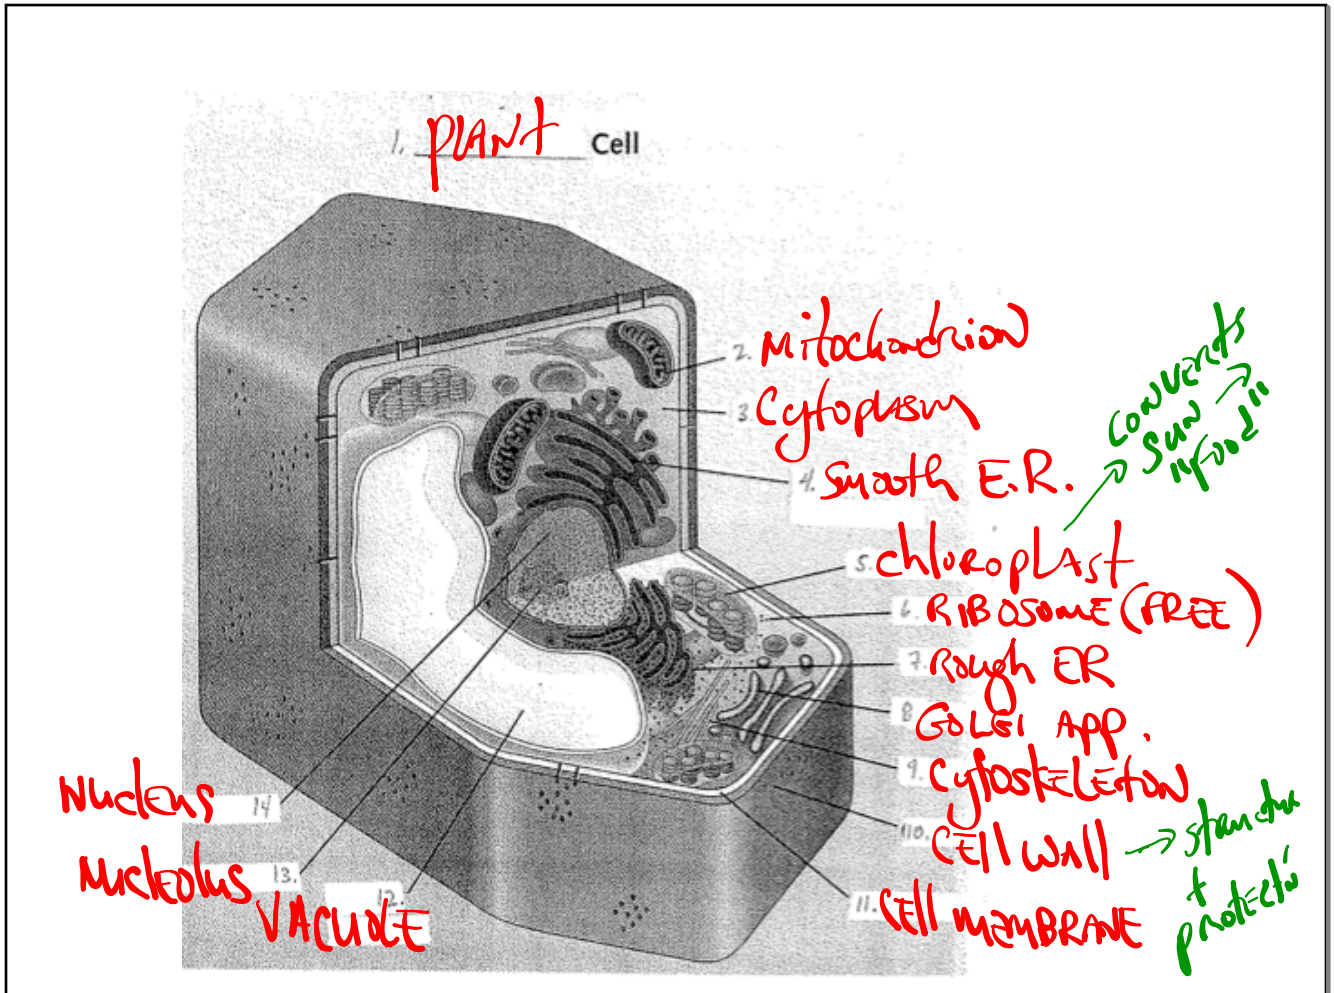 1. PLANT Cell
2. Mitochondrion
3. Cytoplasm
4. Smooth E.R.
converts
sun →
"food"
5. chloroplast
6. RIBOSOME (FREE)
7. Rough ER
8 GOLGI APP.
9. CytoskELEtON
10. CEll WAll → structu
+
protectn
11. CEll MEMBRANE
12. VACUOLE
13. Nucleolus
14 Nucleus